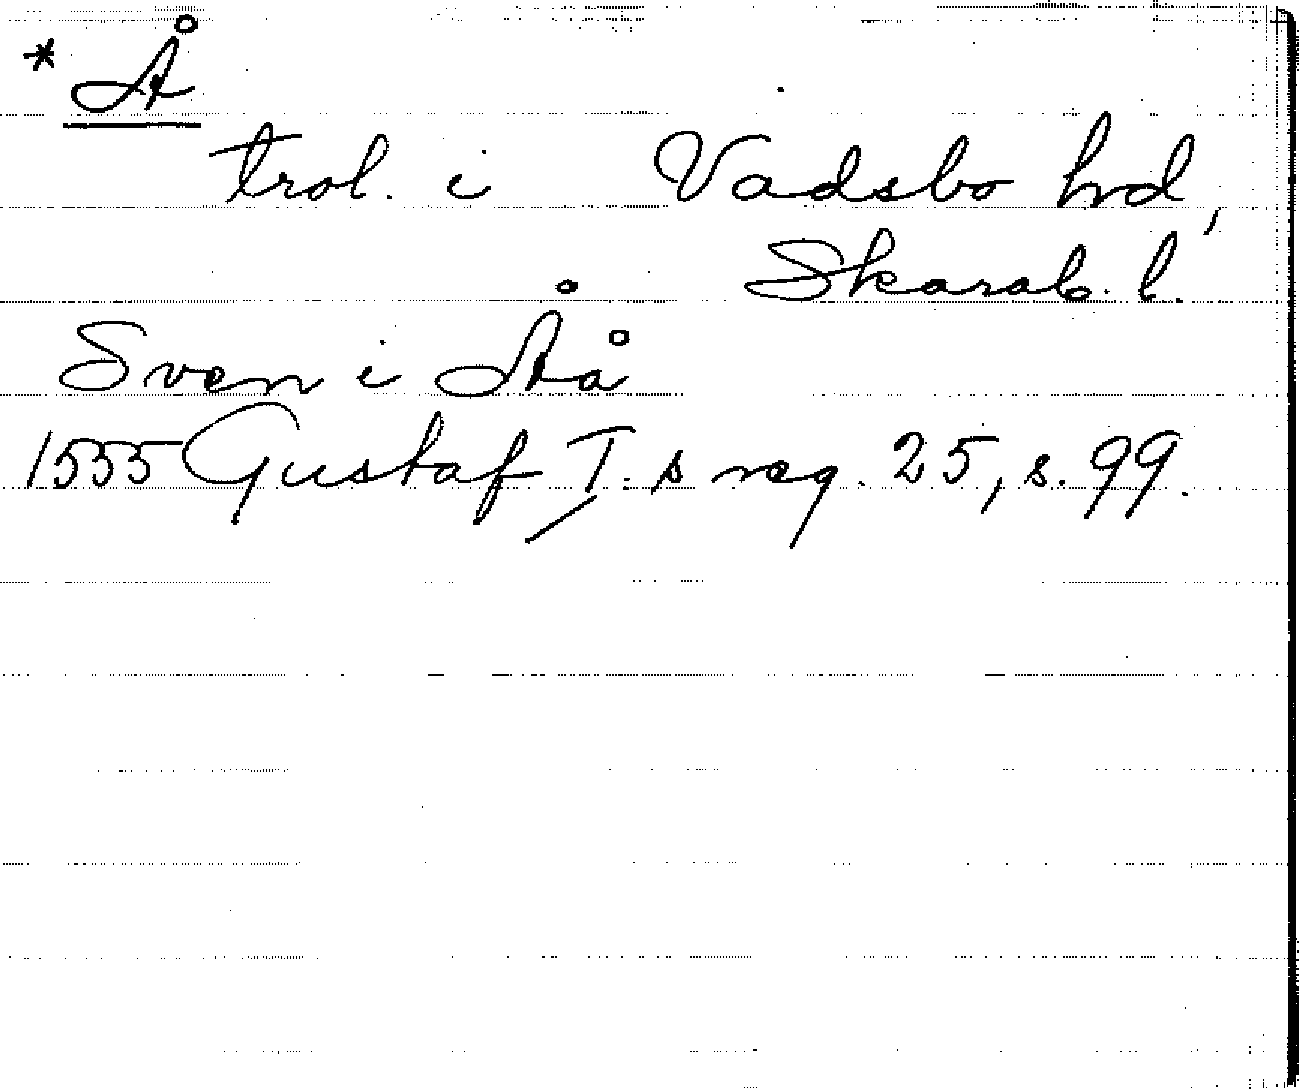 * Å
trol. i Vadsbo hd,
Skarab. l.
Sven i Åå
1555 Gustaf I:s reg. 25, s. 99.